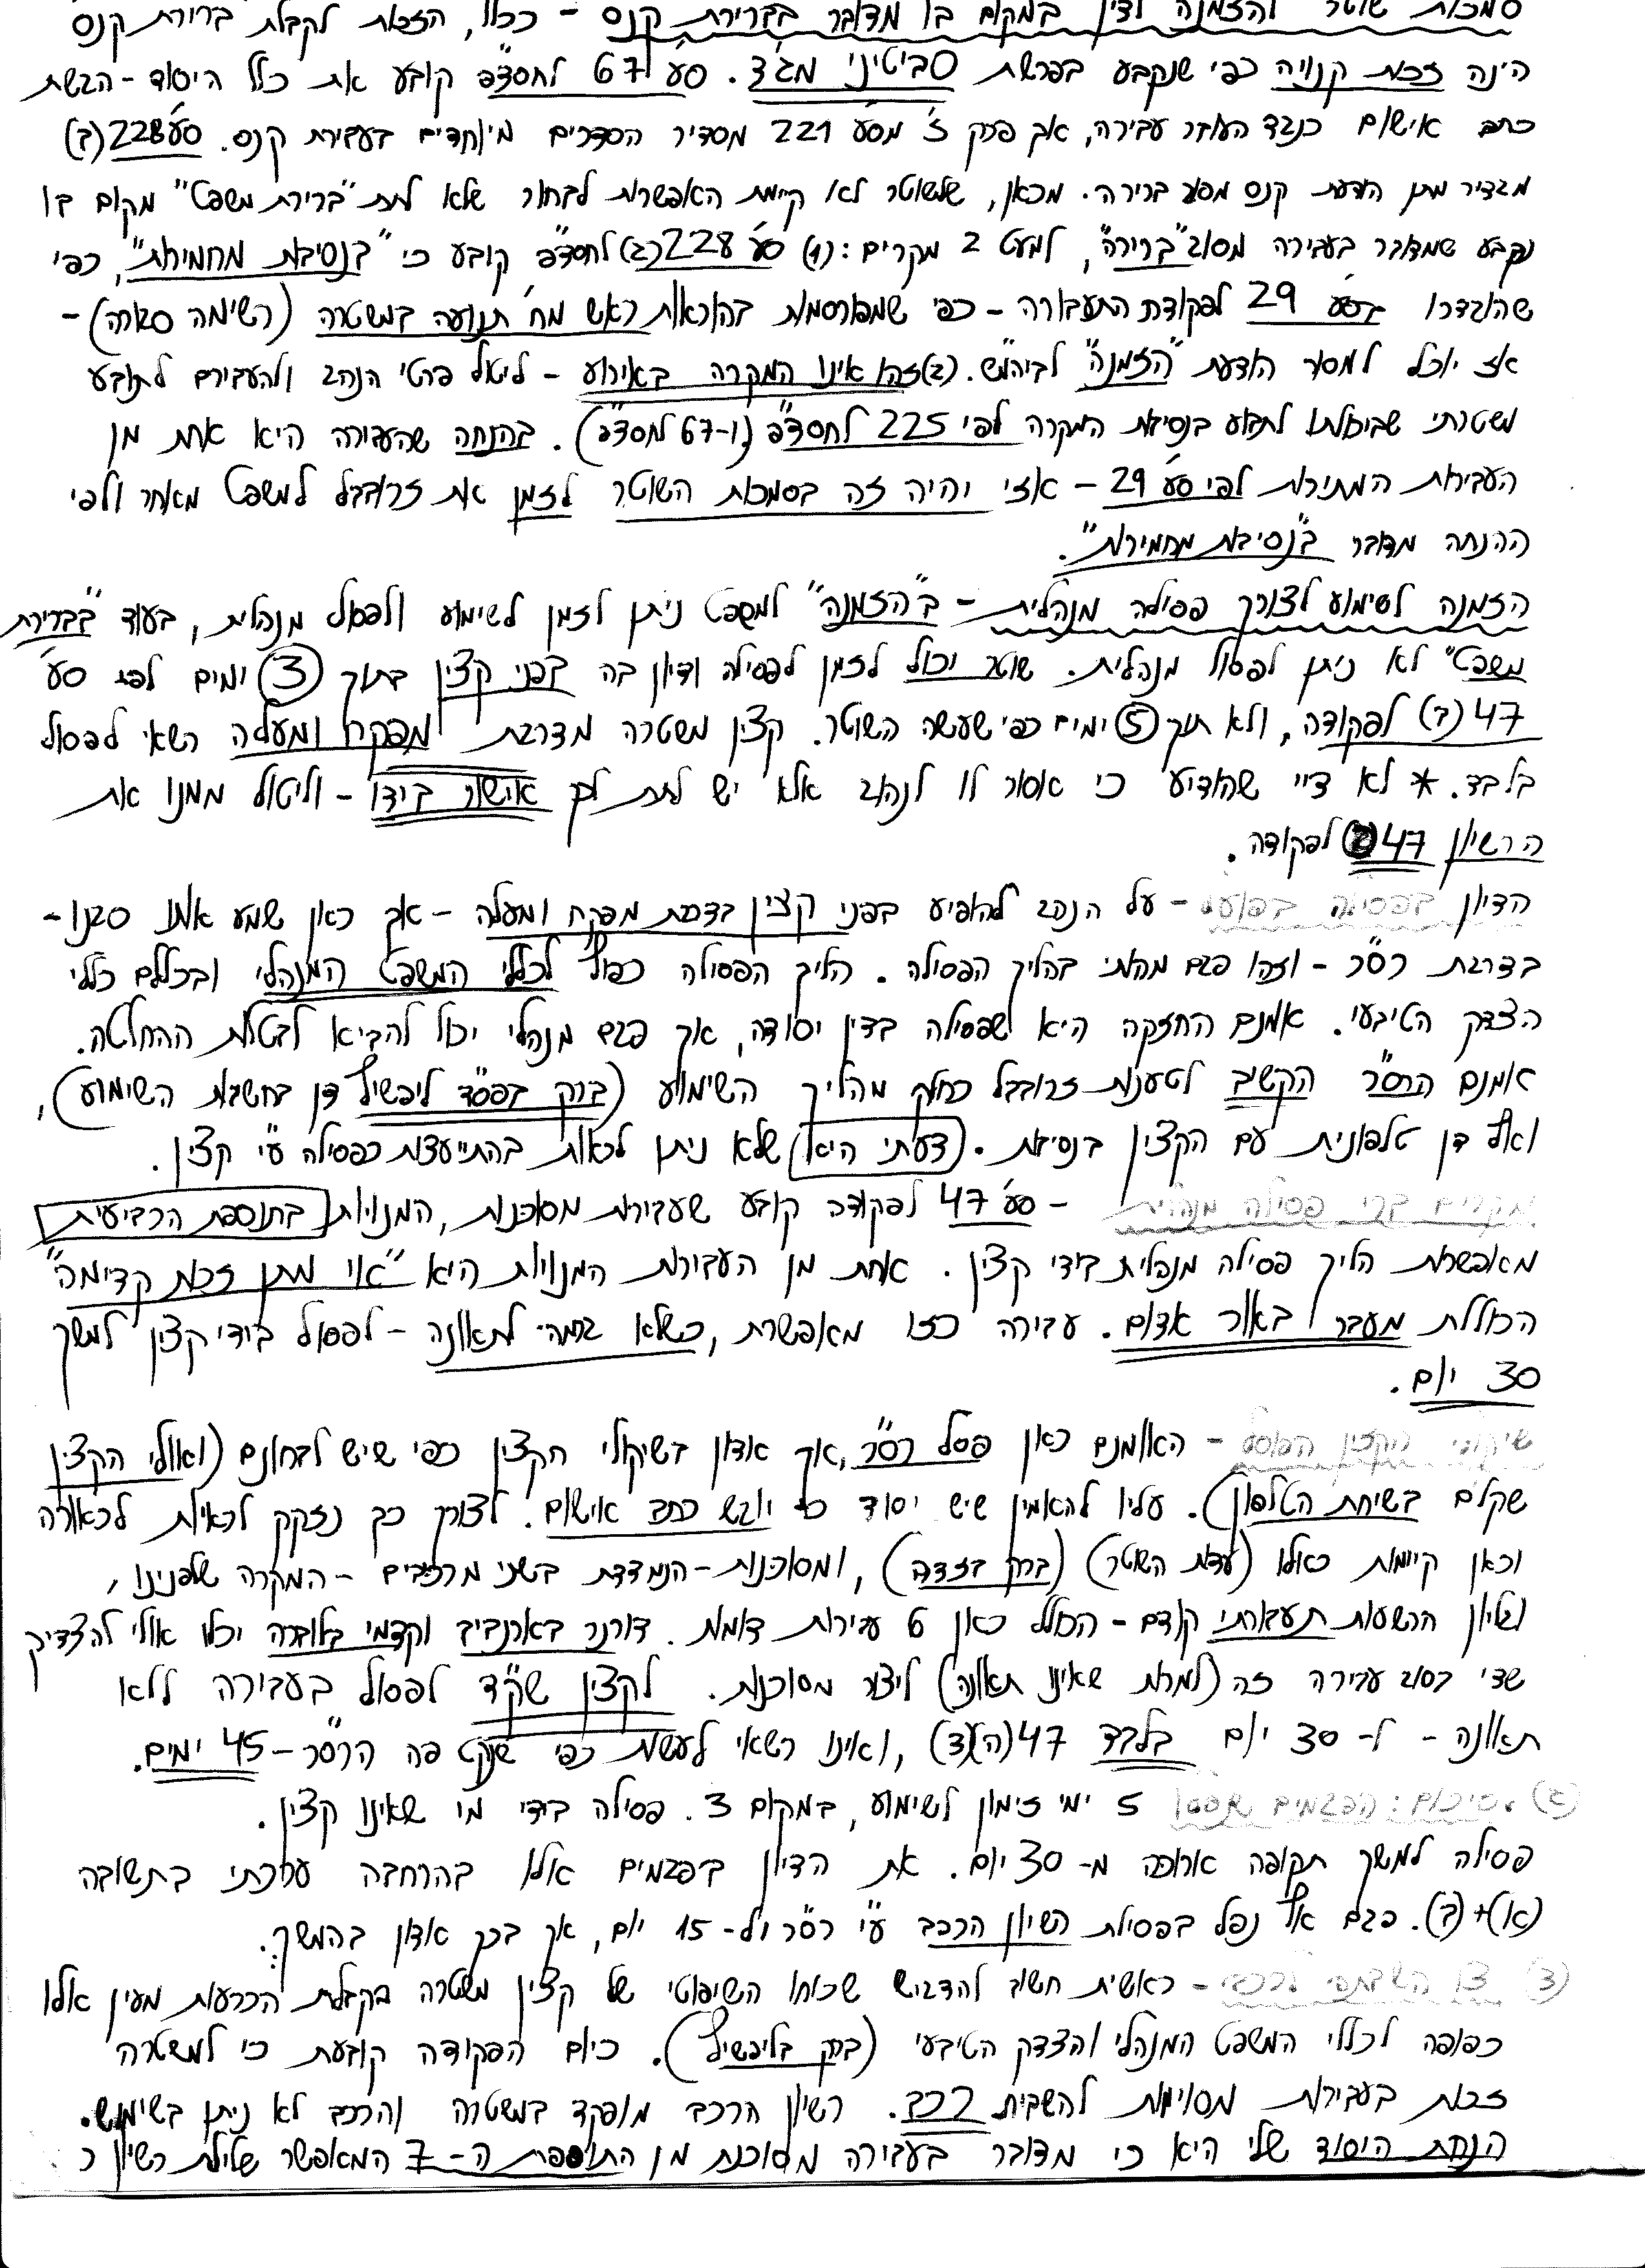 סמכות שוטר להזמנה לדין במקום בו מדובר בברירת קנס - ככלל, הזכות לקבלת ברירת קנס
הינה זכות קנויה כפי שנקבע בפרשת סביטיני מג'ד. סע' 67 לחסד"פ קובע את כלל היסוד - הגשת
כתב אישום כנגד העובר עבירה, אך פרק ז' מסע' 221 מסדיר הסדרים מיוחדים בעבירת קנס. סע' 228(ב)
מגדיר מתן הודעת קנס מסוג ברירה. מכאן, שלשוטר לא קיימת האפשרות לבחור שלא לתת "ברירת משפט" מקום בו
נקבע שמדובר בעבירה מסוג "ברירה", למעט 2 מקרים: (1) סע' 228(ב) לחסד"פ קובע כי "בנסיבות מחמירות", כפי
שהוגדרו בסע' 29 לפקודת התעבורה - כפי שמפורסמות בהוראות ראש מח' תנועה במשטרה (רשימה סגורה) -
אז יוכל למסור הודעת "הזמנה" לביהמ"ש. (2) זהו אינו המקרה באירוע - ליטול פרטי הנהג ולהעבירם לתובע
משטרתי שביכולתו לתבוע בנסיבות המקרה לפי 225 לחסד"פ (ו-67 לחסד"פ). בהנחה שהעבירה היא אחת מן
העבירות המתירות לפי סע' 29 - אזי יהיה זה בסמכות השוטר לזמן את זרובבל למשפט מאחר ולפי
ההנחה מדובר ב"נסיבות מחמירות".
הזמנה לשימוע לצורך פסילה מנהלית - ב"הזמנה" למשפט ניתן לזמן לשימוע ולפסול מנהלית, בעוד "בברירת
משפט" לא ניתן לפסול מנהלית. שוטר יכול לזמן לפסילה ודיון בה בפני קצין בתוך 3 ימים לפי סע'
47(ב) לפקודה, ולא תוך 5 ימים כפי שעשה השוטר. קצין משטרה מדרגת מפקח ומעלה רשאי לפסול
בלבד. * לא דיי שהודיע כי אסור לו לנהוג אלא יש לתת לו אישור בידו - וליטול ממנו את
הרשיון 47 לפקודה.
הדיון בפסילה בפועל - על הנהג להופיע בפני קצין בדרגת מפקח ומעלה - אך כאן שמע אותו סגנו -
בדרגת רס"ר - וזהו פגם מהותי בהליך הפסילה. הליך הפסילה כפוף לכללי המשפט המנהלי ובכללם כללי
הצדק הטיבעי. אמנם החזקה היא שפסילה בדין יסודה, אך פגם מנהלי יכול להביא לבטלות ההחלטה.
אומנם הרס"ר הקשיב לטענות זרובבל כחלק מהליך השימוע (ברק בפס"ד ליפשיץ דן בחשיבות השימוע),
ואף דן טלפונית עם הקצין בנסיבות. דעתי היא שלא ניתן לראות בהתייעצות כפסילה ע"י קצין.
מקרים בני פסילה מנהלית - סע' 47 לפקודה קובע שעבירות מסוכנות, המנויות בתוספת הרביעית
מאפשרות הליך פסילה מנהלית בידי קצין. אחת מן העבירות המנויות היא "אי מתן זכות קדימה"
הכוללת מעבר באור אדום. עבירה כזו מאפשרת, כשלא גרמה לתאונה - לפסול בידי קצין למשך
30 יום.
שיקולי הקצין הפוסל - האומנם כאן פסל רס"ר, אך אדון בשיקולי הקצין כפי שיש לבחונם (ואולי הקצין
שקלם בשיחת הטלפון). עליו להאמין שיש יסוד כי יוגש כתב אישום. לצורך כך נזקק לראיות לכאורה
וכאן קיימות כאלו (עדות השוטר) (ברק בזדה), ומסוכנות - הנמדדת בשני מרכיבים - המקרה שלפנינו,
וגליון הרשעות תעבורתי קודם - הכולל כאן 6 עבירות דומות. דורנר בארנביב וקדמי בלוגרה יכלו אולי להצדיק
שדי בסוג עבירה זה (למרות שאינו תאונה) ליצור מסוכנות. לקצין שק"ד לפסול בעבירה ללא
תאונה - ל-30 יום בלבד 47(ה)(3), ואינו רשאי לעשות כפי שנקט פה הרס"ר - 45 ימים.
(2) סיכום: הפגמים שנפלו 5 ימי זימון לשימוע, במקום 3. פסילה בידי מי שאינו קצין.
פסילה למשך תקופה ארוכה מ-30 יום. את הדיון בפגמים אלו בהרחבה ערכתי בתשובה
(א)+(ב). פגם אף נפל בפסילת רשיון הרכב ע"י רס"ר ול-15 יום, אך בכך אדון בהמשך.
(3) צו השבתה לרכב - ראשית חשוב להדגיש שכוחו השיפוטי של קצין משטרה בקבלת הכרעות מעין אלו
כפופה לכללי המשפט המנהלי והצדק הטיבעי (ברק בליפשיץ). כיום הפקודה קובעת כי למשטרה
זכות בעבירות מסוימות להשבית רכב. רשיון הרכב מופקד במשטרה והרכב לא ניתן בשימוש.
הנחת היסוד שלי היא כי מדובר בעבירה מסוכנת מן התוספת ה-7 המאפשר שלילת רשיון ר